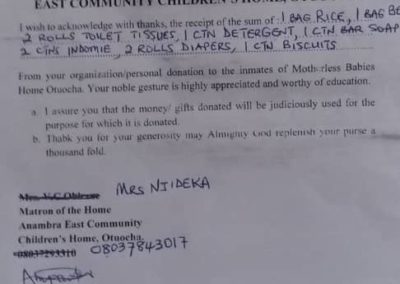 EAST COMMUNITY CHILDREN'S HOME,
I wish to acknowledge with thanks, the receipt of the sum of: 1 BAG RICE, 1 BAG BE
2 ROLLS TOILET TISSUES, 1 CTN DETERGENT, 1 CTN BAR SOAP
2 CTNS INDOMIE, 2 ROLLS DIAPERS, 1 CTN BISCUITS
From your organization/personal donation to the inmates of Motherless Babies
Home Otuocha. Your noble gesture is highly appreciated and worthy of education.
a. I assure you that the money/ gifts donated will be judiciously used for the
purpose for which it is donated.
b. Thabk you for your generosity may Almighty God replenish your purse a
thousand fold.
MRS NJIDEKA
Matron of the Home
Anambra East Community
Children's Home, Otuocha.
08037293310 08037843017